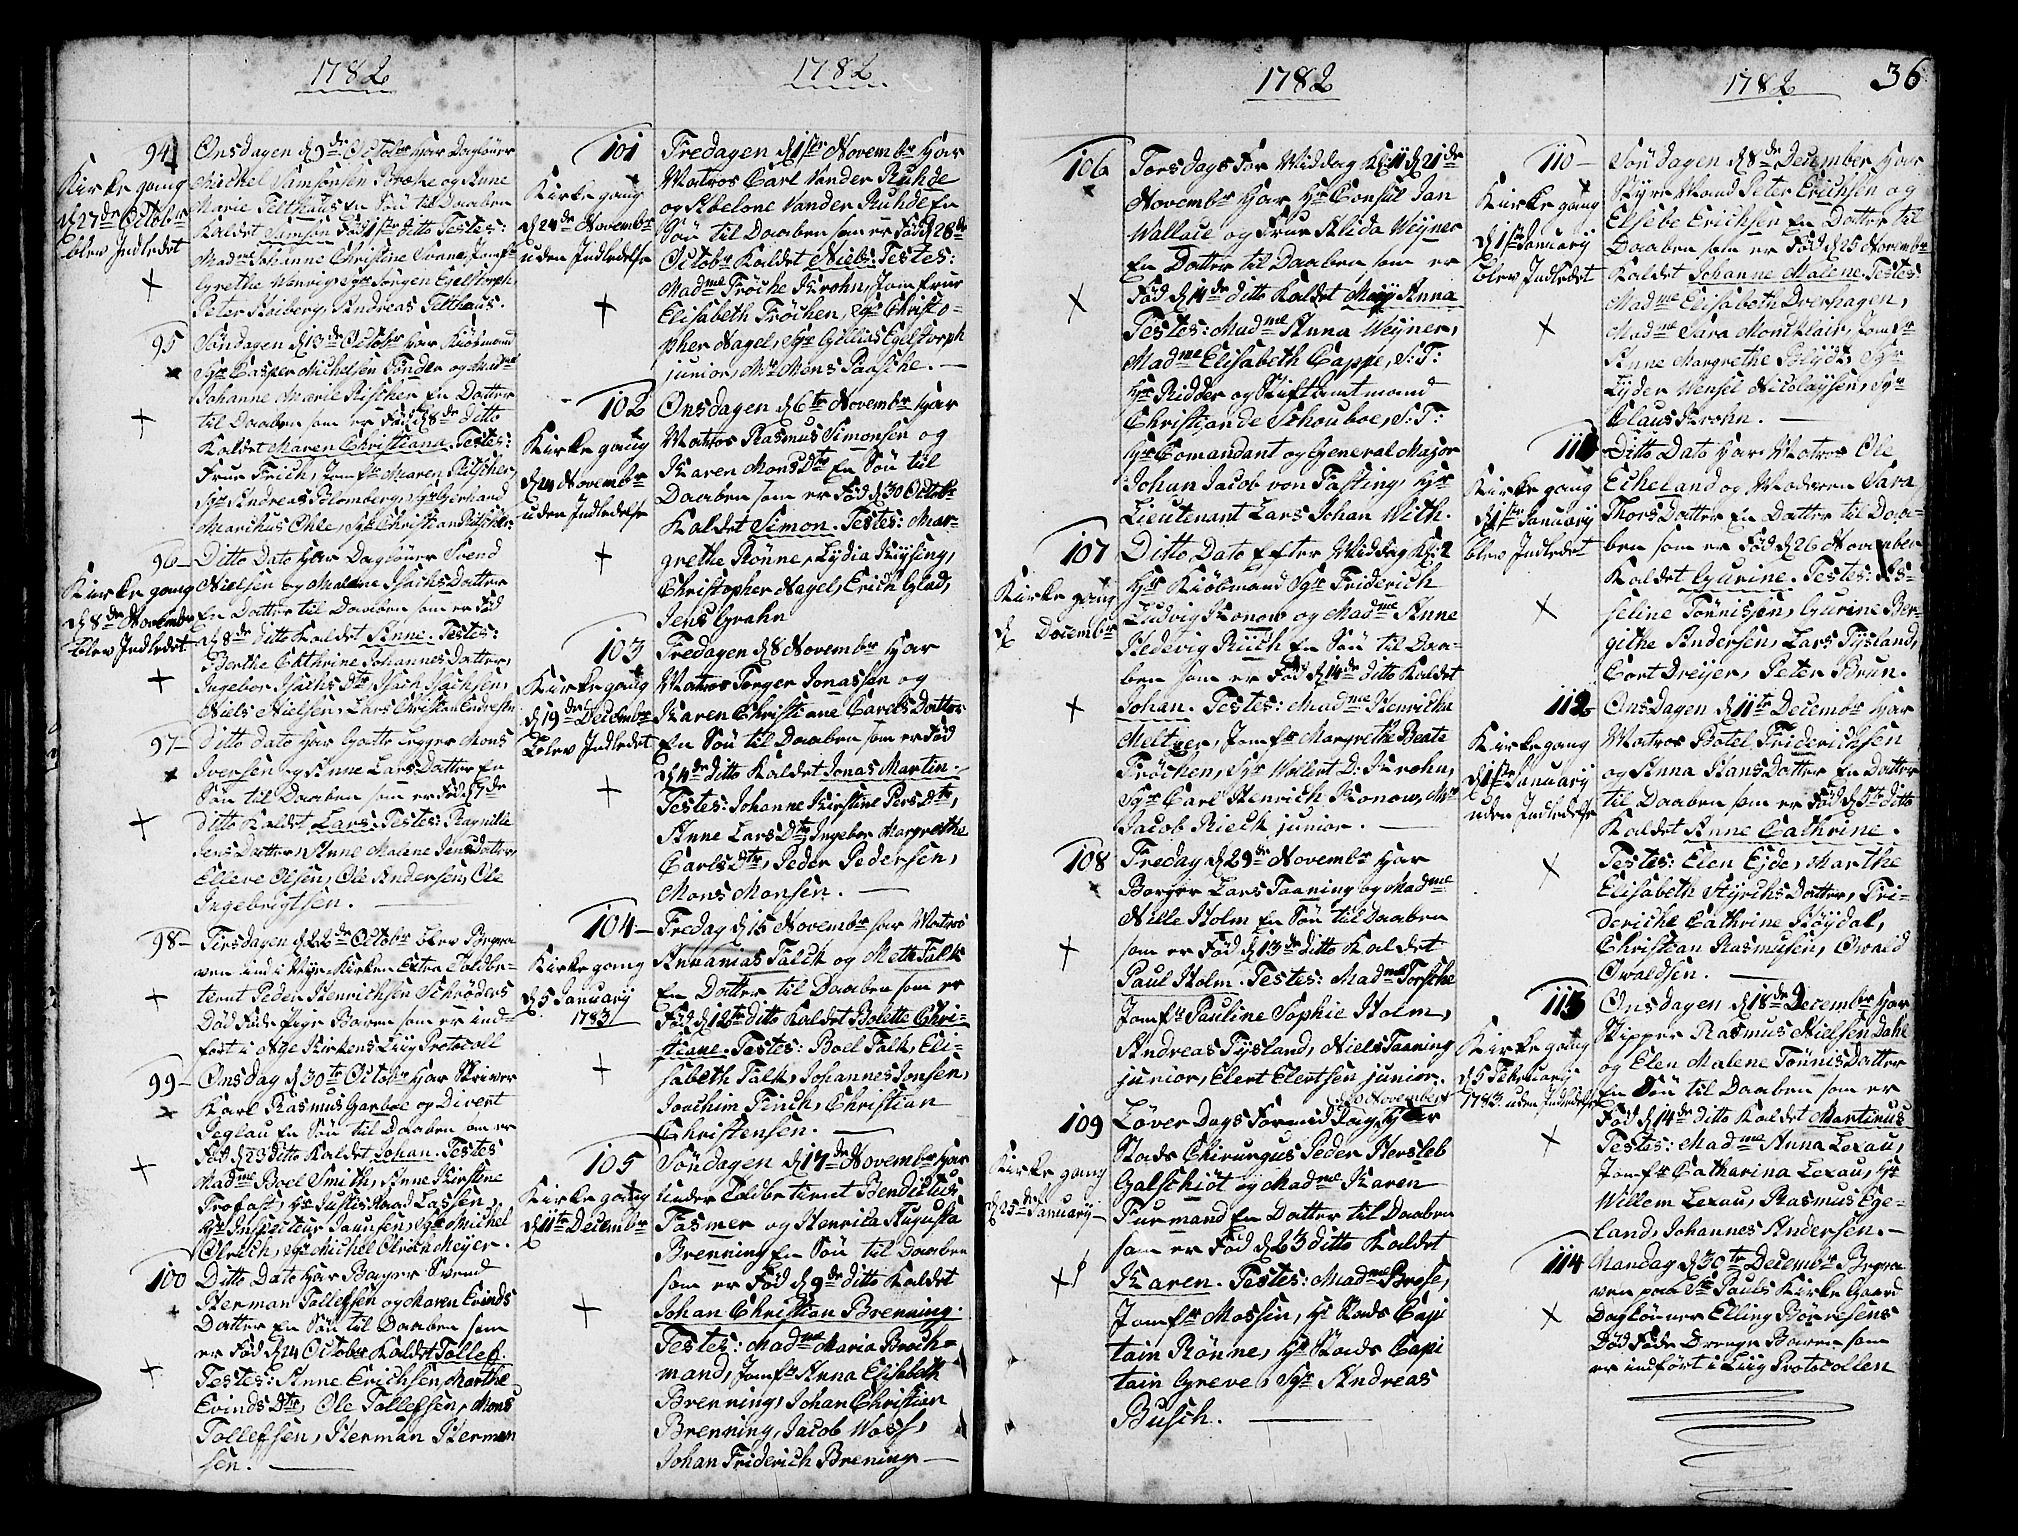 1782
94
Kirke gang
d 27de Octobr
blev Indledet
Onsdagen d 9de Octobr har Dagløner
Michel Samsonsen og Anne
Marie Tilthaus en Søn til Daaben
Kaldet Samson Fød 1ste ditto Testes:
Madme Johanne Christine Jomfr
Grethe Sgr Jørgen Egeltorph
Peter Andreas Tilthaus.
95
Søndagen d 13de Octobr har Kiøbmand
Sgr Casper Michelsen Tønder og Madme
Johanne Marie Rischer En Datter
til Daaben som er Fød d 8de ditto
Kaldet Maren Christiana. Testes:
Frue Frich, Jomfr Maren Ritscher
Sgr Andreas Blomberg, Sgr Gerhard
Marchus Ohle, Sgr Christian Ritscher.
96
Kirke gang
d 8de Novembr
blev Indledet
Ditto Dato Har Dagløner Svend
Nielsen og Malene Isachs Datter
En Datter til Daaben som er Fød
d 8de ditto Kaldet Anne. Testes:
Berthe Cathrine Johannes Datter,
Ingebor Isachs Dtr Isach Isachsen,
Niels Nielsen, Lars Christian
97
Ditto dato har Mons
Iversen og Anne Lars Datter En
Søn til Daaben som er Fød d 7de
ditto Kaldet Lars. Testes: Ragnilde
Jens Datter, Anne Malene Jens Datter,
Elleve Olsen, Ole Andersen, Ole
Ingebrigtsen.
98
Tirsdagen d 22de Octobr blev Begra-
ven ind i Nye Kirken Extra Toldbe-
tient Peder Henrichsen Schrøders
Død Føde Pige Barn som er ind-
ført i Nye Kirkens Liig Protocoll
99
Onsdag d 30te Octobr Har Skriver
Karl Rasmus Garboe og Divert
Peglau En Søn til Daaben om er
Fød d 23 ditto Kaldet Johan. Testes
Madme Boel Smith, Anne Kirstine
Profast, Hr Justis Raad Lassen,
Hr Inspecteur Sgr Michel
Olrich, Sgr Michel Olrich Meyer.
100
Ditto Dato Har Borger Svend
Herman Tollefsen og Maren Evinds
Datter En Søn til Daaben som
er Fød d 24 Octobr Kaldet Tollef.
Testes: Anne Erichsen, Marthe
Evinds Dtr, Ole Tollefsen, Mons
Tollefsen, Herman Herman
sen.
1782
101
Kirke gang
d 24de Novembr
uden Indledelse
Fredagen d 1ste Novembr har
Matros Carl Vander Ruhde
og Abelone Vander Ruhde En
Søn til Daaben som er Fød d 28de
Octobr Kaldet Niels: Testes:
Madme Frøche Krohn, Jomfrue
Elisabeth Frøchen, Sgr Christo-
pher Nagel, Sgr Gillias Egeltorph
junior, Mr Mons Paasche.
102
Kirke gang
d 24 Novembr
uden Indledelse
Onsdagen d 6te Novembr har
Matros Rasmus Simonsen og
Karen Mons Dtr En Søn til
Daaben som er Fød d 30 Octobr
Kaldet Simon. Testes: Mar-
grethe Rønne, Lydia Kiysing,
Christopher Nagel, Erich Glad,
Jens Grahn
103
Kirke gang
d 19de Decembr
blev Indledet
Fredagen d 8 Novembr har
Matros Torger Jonassen og
Karen Christiane Carels Datter
En Søn til Daaben som er Fød
d 4de ditto Kaldet Jonas Martin.
Testes: Johanne Kirstine Pers Dtr,
Anne Lars Dtr, Ingebor Margrethe
Carls Dtr, Peder Pedersen,
Mons Monsen.
104
Kirke gang
d 5 January
1783
Fredag d 15 Novembr har Matros
Annanias Falck og Meth Falk
En Datter til Daaben som er
Fød d 12te ditto Kaldet Bolette Chri-
stiane. Testes: Boel Falk, Eli-
sabeth Falk, Johannes Jonsen,
Joachim Finck, Christian
Christensen.
105
Kirke gang
d 11te Decembr
Søndagen d 17de Novembr har
Under Toldbetient Bendictus
Tasmer og Henrica Augusta
Brenning En Søn til Daaben
som er Fød d 9de ditto Kaldet
Johan Christian Brenning.
Testes: Madme Maria Broch-
mand, Jomfr Anna Elisabeth
Brenning, Johan Christian
Brenning, Jacob Woss,
Johan Friderich Brening
1782
106
Torsdags For Middag Kl: 11 d 21de
Novembr Har Hr Consul Jan
Wallace og Frue Alida Weyner
En Datter til Daaben som er
Fød d 14de ditto Kaldet May Anna
Testes: Madme Anna Weyner,
Madme Elisabeth Cappe, S: T:
Hr Ridder og Stiftamtmand
Christian de Schouboe, S: T:
Hr Comandant og General Major
Johan Jacob von Fasting, Hr
Lieutenant Lars Johan With.
107
Kirke gang
d Decembr
Ditto Dato Efter Middag Kl: 2
Har Kiøbmand Sgr Friderich
Ludvig Konow og Madme Anne
Hedevig Riich En Søn til Daa-
ben som er Fød d 14de ditto Kaldet
Johan. Testes: Madme Henricha
Meltzer, Jomfr Margrethe Beate
Frøchen, Sgr Wollert D: Krohn,
Sgr Carl Henrich Konow, Mr
Jacob Rieck junior.
108
Fredag d 29de Novembr Har
Borger Lars Taaning og Madme
Nille Holm En Søn til Daaben
som er Fød d 13de ditto Kaldet
Paul Holm. Testes: Madme Torsche
Jomfr Pauline Sophie Holm,
Andreas Fysland, Niels Taaning
junior, Elert Elertsen junior.
109
Kirke gang
d 25de January
d 30 November
Løver Dags Formid Dag, Har
Stads Chirurgus Peder Hersleb
Galschiøt og Madme Karen
Furmand En Datter til Daaben
som er Fød d 23 ditto Kaldet
Karen. Testes: Madme Brose,
Jomfr Mossin, Hr Stads Capi
tain Rønne, Hr Stads Capi
tain Greve, Sgr Andreas
Busch.
1782 36
110
Kirke gang
d 1ste January
blev Indledet
Søndagen d 8de December Har
Styrmand Peter Erichsen og
Elsebe Erichsen En Datter til
Daaben som er Fød d 25 Novembr
Kaldet Johanne Malene. Testes
Madme Elisabeth Dreshagen,
Madme Sara Montklair, Jomfr
Anne Margrethe Blyd, Sgr
Lyder Wensel Nicolaysen, Sgr
Claus Krohn.
111
Kirke gang
d 1ste January
blev Indledet
Ditto Dato Har Matros Ole
Echeland og Moderen Sara
Thors Datter En Datter til Daa-
ben som er Fød d 26 November
Kaldet Gurine. Testes: As-
seline Tønnissen, Gurine Ber-
githe Andersen, Lars Fysland,
Cort Dreyer, Peter Brun.
112
Kirke gang
d 1ste January
uden Indledelse
Onsdagen d 11te Decembr Har
Matros Botel Friderichsen
og Anna Hans Datter En Datter
til Daaben som er Fød d 5te ditto
Kaldet Anne Cathrine.
Testes: Elen Eide, Marthe
Elisabeth Hyrichs Datter, Fri-
deriche Cathrine Høydal,
Christian Rasmusen, Owald
Owaldsen.
113
Kirke gang
d 5 February
1783. uden Indledelse
Onsdagen d 18de Decembr Har
Skipper Rasmus Nielsen Dahl
og Elen Malene Tønnis Datter
En Søn til Daaben som er
Fød d 14de ditto Kaldet Martinus
Testes: Madme Anna Lexau,
Jomfr Catharina Lexau, Hr
Willem Lexau, Rasmus Ege-
land, Johannes Andersen.
114
Mandag d 30te Decembr Begra-
ven paa St Pauls Kirke Gaard
Dagløner Elling Børresens
Død Føde Drenge Barn som
er indført i Liig Protocollen